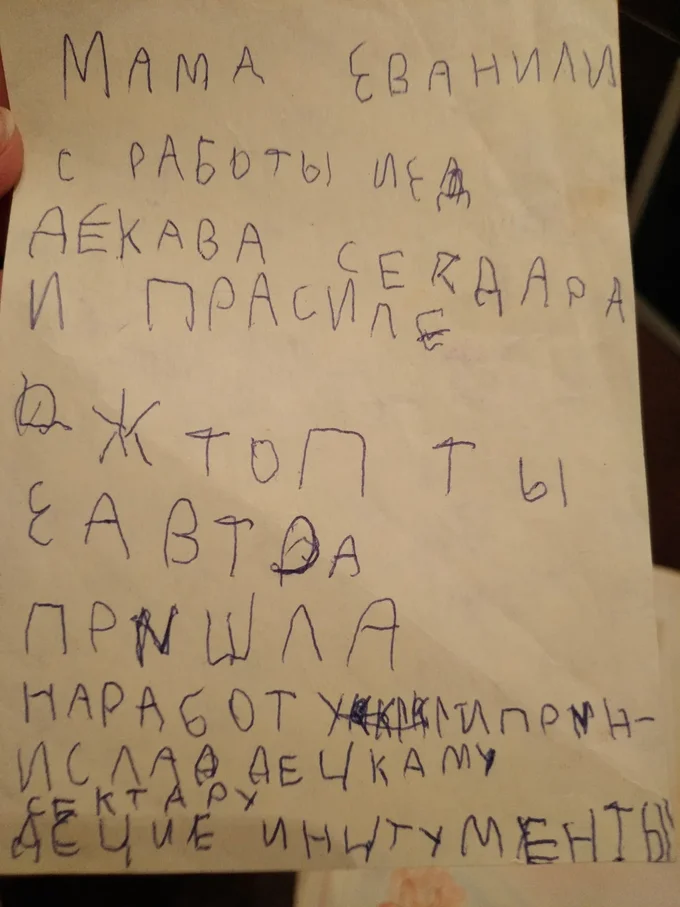 МАМА ЕВАНИЛИ
С РАБОТЫ ИЕД
ДЕКАВА СЕКДАРА
И ПРАСИЛЕ
ЖТОП ТЫ
ЕАВТРА
ПРИШЛА
НАРАБОТУ ИПРИН-
ИСЛАД ДЕЦКАМУ
СЕКТАРУ
ДЕЦИЕ ИНЫТУМЕНТЫ